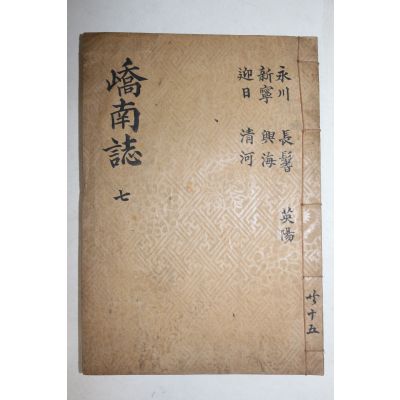 嶠南誌
七
永川 長鬐 英陽
新寧 興海
迎日 清河
共十五